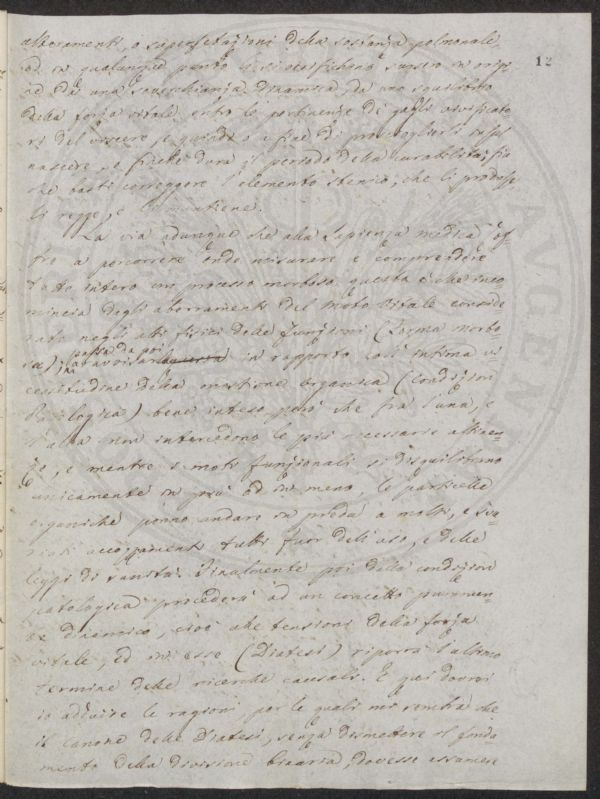 12
alteramenti, o superfetazioni della sostanza polmonale,
ed in qualunque punto essi osservinsi sursero in orig.
ad da una soverchianza dinamica, da uno squilibrio
della forza vitale entro le pertinenze di quegli vivificato
ri del viscere, e quindi a fine di
nascere, o finché dura il periodo della curabilità, fia
che basti correggere l'elemento stenico, che li produsse
li regge, e li mantiene.
La via adunque che alla sapienza medica s'of-
fre a percorrere onde misurare e comprendere
tutto intero un processo morboso questa è che inco
mincia dagli aberramenti del moto vitale conside
rato negli atti fisici delle funzioni (Forma morbo-
sa), passa da poi
a ravvisarla in rapporto coll'intima vi
cessitudine della mistione organica (Condizion
Patologica) bene inteso però che fra l'una, e
l'altra non intercedono le più necessarie attinen-
ze, e mentre i moti funzionali si disquilibrano
unicamente in più od in meno, le particelle
organiche ponno andare in preda a molti, e sva-
riati accoppiamenti tutti fuor dell'uso, e delle
leggi di sanità. Finalmente poi dalla condizion
patologica procederà ad un concetto puramen-
te dinamico, cioè alle tensioni della forza
vitale, ed in esse (Diatesi) riporrà l'ultimo
termine delle ricerche causali. E qui dovrei
io addurre le ragioni per le quali mi sembra che
il canone delle Diatesi, senza dismettere il fonda-
mento della divisione binaria, dovesse essere